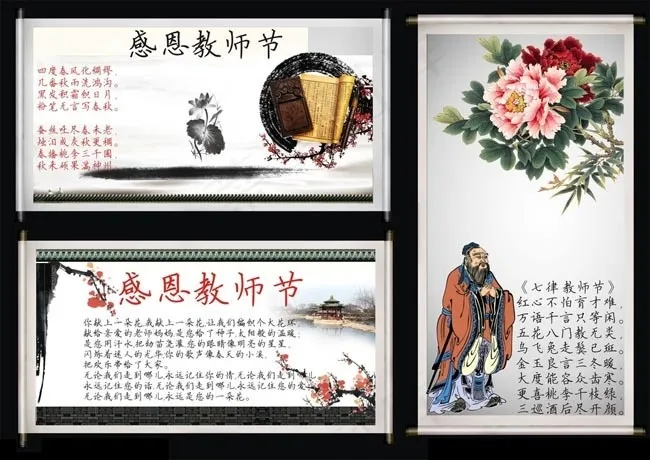 感恩教师节
四度春风化绸缪,
几番秋雨洗鸿沟。
黑发积霜积日月,
粉笔无言写春秋。
蚕丝吐尽春未老,
烛泪成灰秋更稠。
春播桃李三千圃,
秋来硕果满神州
感恩教师节
你献上一朵花,我献上一朵花,让我们编织个大花环,
献给亲爱的老师妈妈是您给了种子太阳般的温暖;
是您用汗水把幼苗浇灌您的眼睛像明亮的星星,
闪烁着迷人的光华你的歌声像春天的小溪,
把欢乐带给了大家。
无论我们走到哪儿,永远记住你的情无论我们走到哪儿,
永远记住您的话无论我们走到哪儿,永远记住您的爱
无论我们走到哪儿永远是您的一朵花。
《七律教师节》
红心不怕育才难,
万语千言只等闲。
五花八门教无类,
乌飞兔走鬓已斑。
金玉良言三冬暖,
大度能容众齿寒。
更喜桃李千枝绿,
三巡酒后尽开颜。